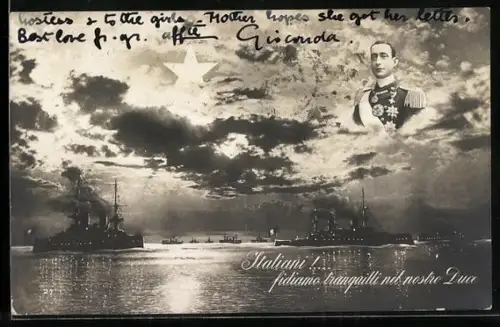 hostess & to the girls – Mother hopes she got her letter.
Best love fr. yr. affte Gisconda.
Italiani!..
fidiamo tranquilli nel nostro Duce